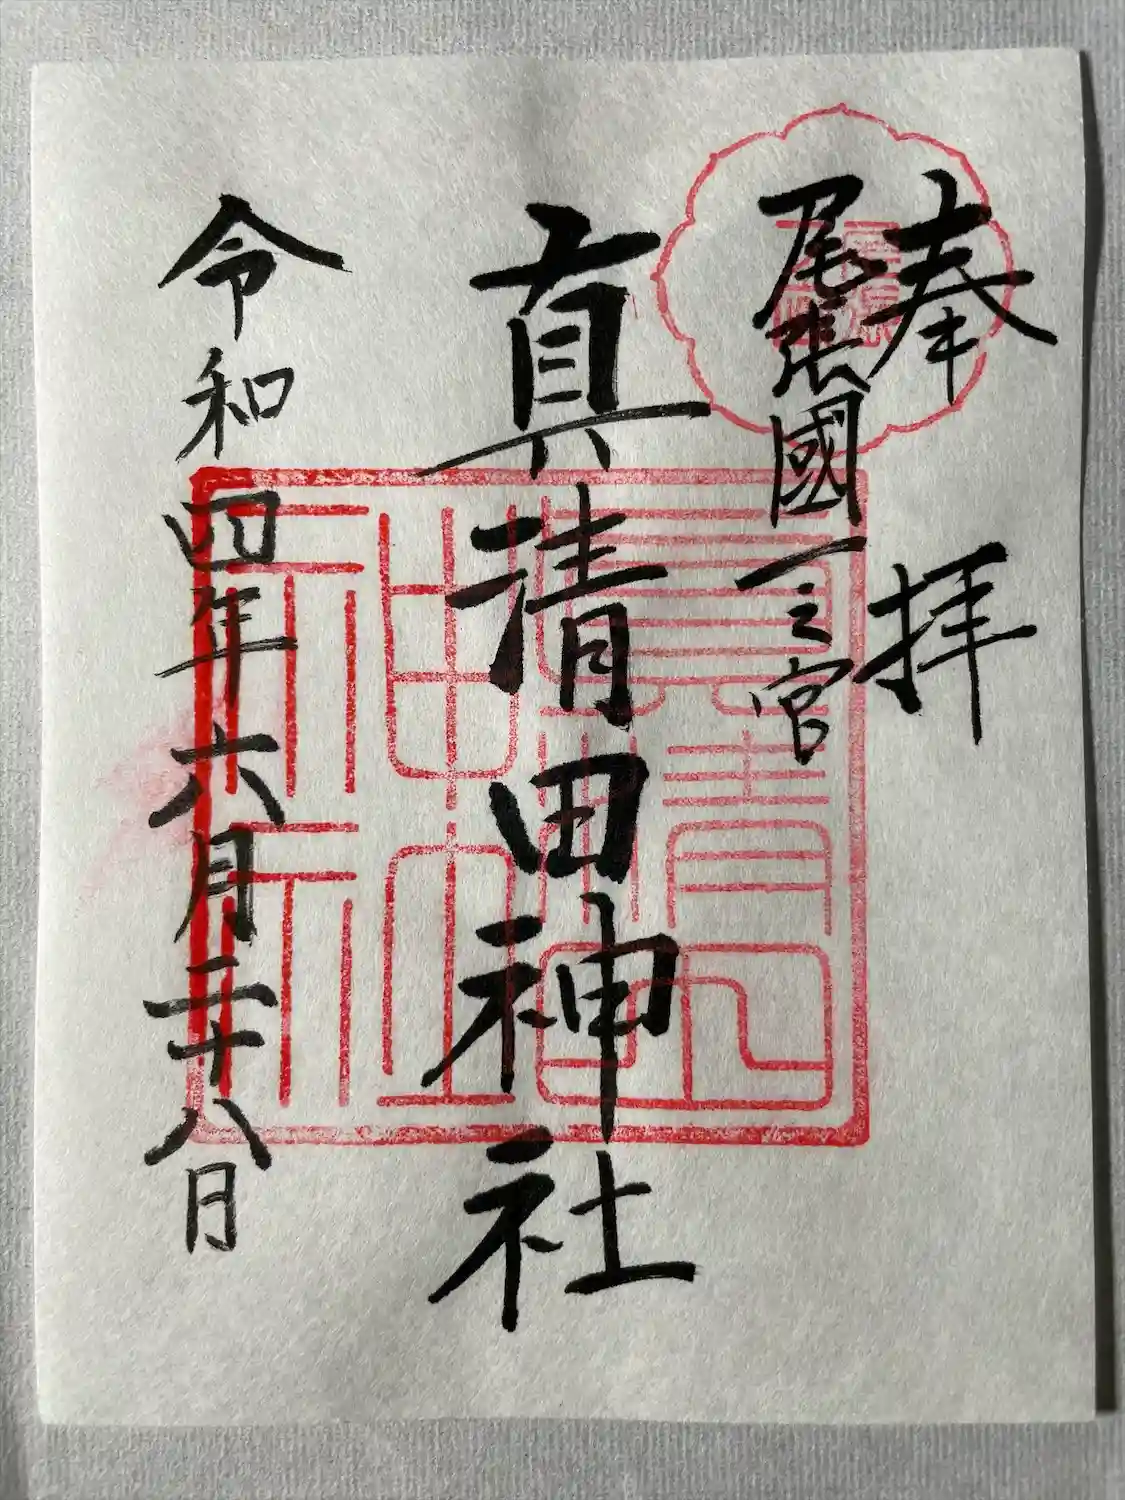 奉拝
尾張國一之宮
真清田神社
令和四年六月二十八日
真清田神社